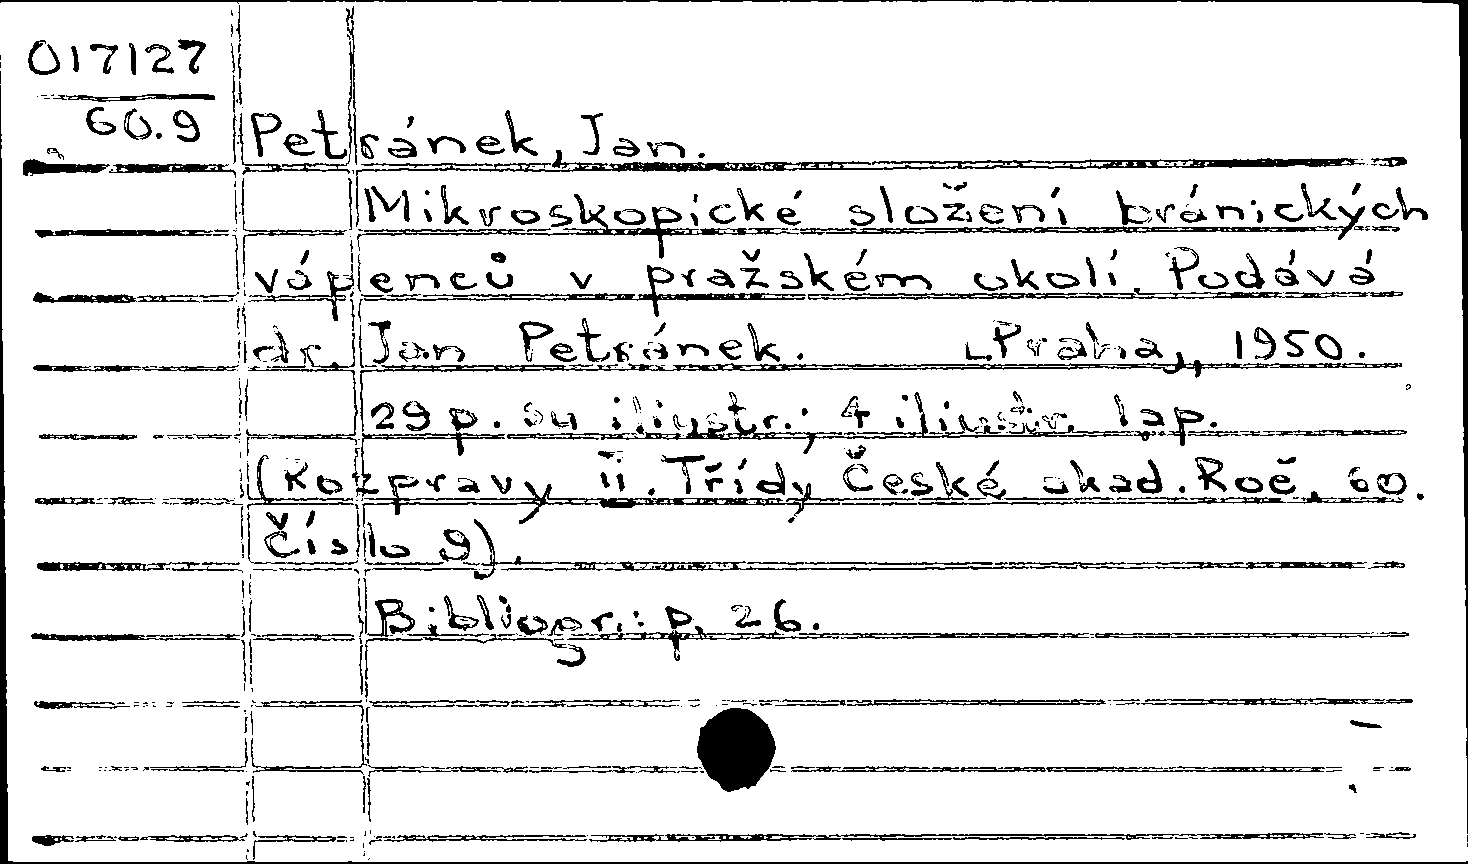 017127
60.9
Petránek, Jan.
Mikroskopické složení bránických
vápenců v pražském okolí. Podává
dr. Jan Petránek. [Praha], 1950.
29 p. su iliustr.; 4 iliustr. lap.
(Rozpravy II. Třídy České akad. Roč. 60.
Číslo 9).
Bibliogr.: p. 26.